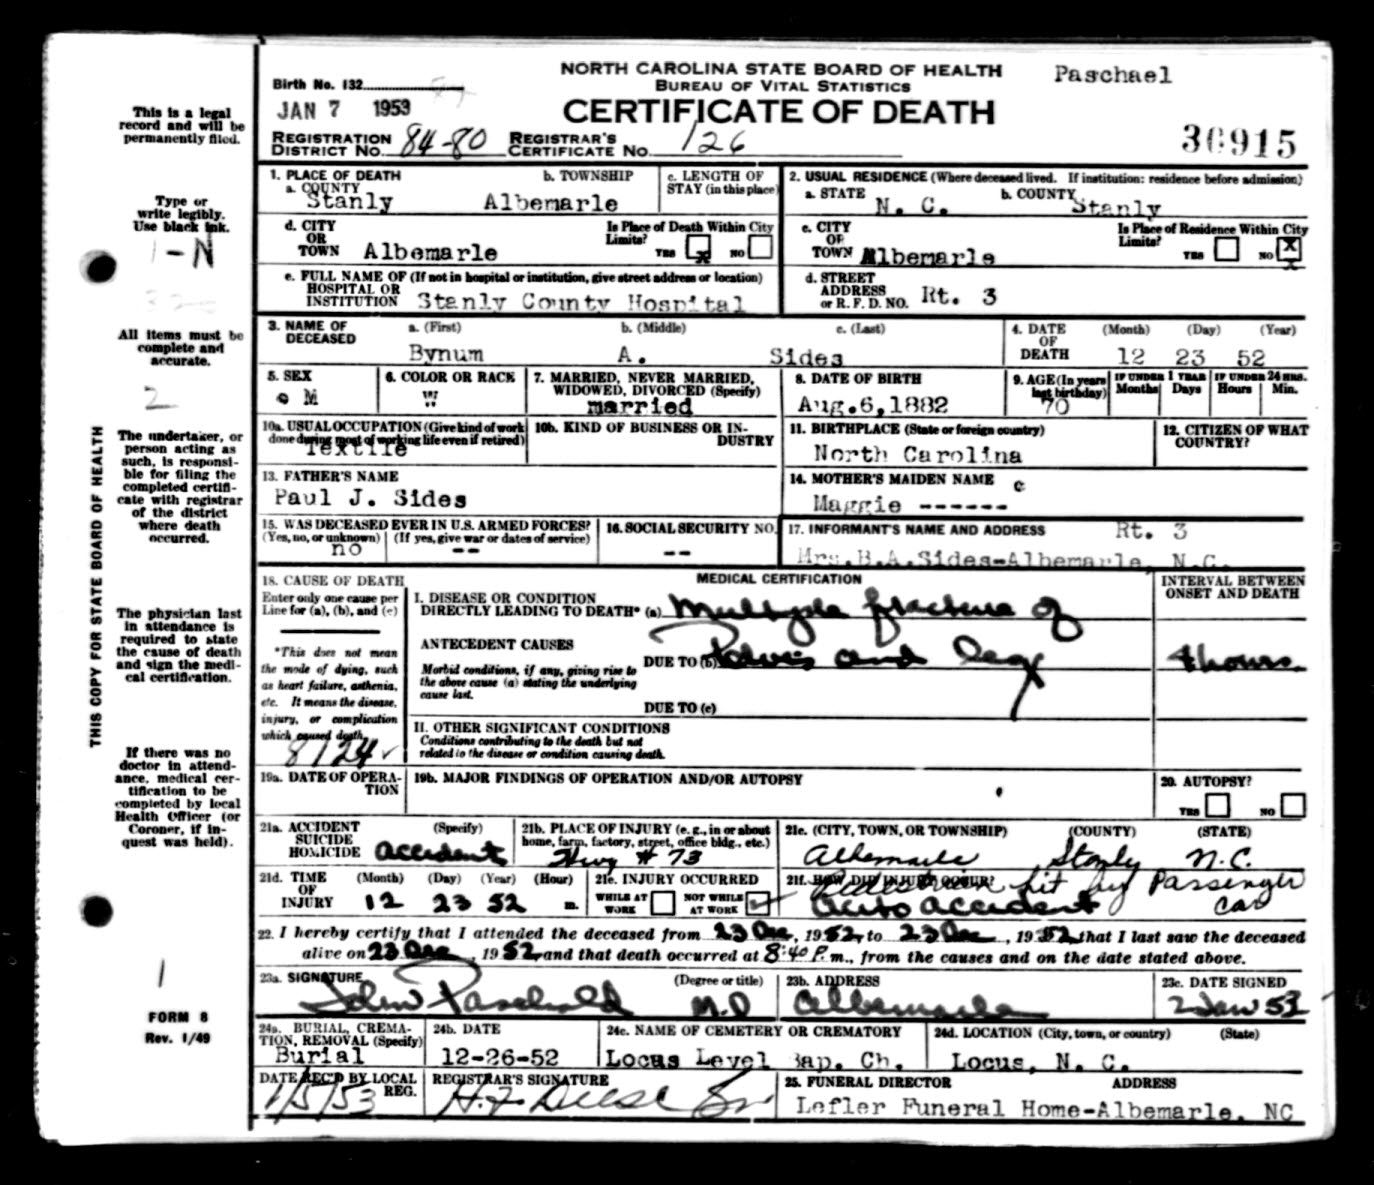 NORTH CAROLINA STATE BOARD OF HEALTH
BUREAU OF VITAL STATISTICS
CERTIFICATE OF DEATH
Paschael
Birth No. 132
JAN 7 1953
REGISTRATION DISTRICT No. 84-80 REGISTRAR'S CERTIFICATE No. 126
36915
This is a legal
record and will be
permanently filed.
Type or
write legibly.
Use black ink.
1-N
All items must be
complete and
accurate.
2
The undertaker, or
person acting as
such, is responsi-
ble for filing the
completed certifi-
cate with registrar
of the district
where death
occurred.
The physician last
in attendance is
required to state
the cause of death
and sign the medi-
cal certification.
If there was no
doctor in attend-
ance, medical cer-
tification to be
completed by local
Health Officer (or
Coroner, if in-
quest was held).
1
FORM 8
Rev. 1/49
THIS COPY FOR STATE BOARD OF HEALTH
1. PLACE OF DEATH
a. COUNTY
Stanly
b. TOWNSHIP
Albemarle
c. LENGTH OF
STAY (in this place)
2. USUAL RESIDENCE (Where deceased lived. If institution: residence before admission)
a. STATE
N. C.
b. COUNTY
Stanly
d. CITY
OR
TOWN Albemarle
Is Place of Death Within City
Limits?
YES X NO
c. CITY
OR
TOWN Albemarle
Is Place of Residence Within City
Limits?
YES NO X
e. FULL NAME OF (If not in hospital or institution, give street address or location)
HOSPITAL OR
INSTITUTION Stanly County Hospital
d. STREET
ADDRESS
or R. F. D. NO. Rt. 3
3. NAME OF
DECEASED
a. (First)
Bynum
b. (Middle)
A.
c. (Last)
Sides
4. DATE
OF
DEATH
(Month) (Day) (Year)
12 23 52
5. SEX
M
6. COLOR OR RACE
W
7. MARRIED, NEVER MARRIED,
WIDOWED, DIVORCED (Specify)
married
8. DATE OF BIRTH
Aug.6,1882
9. AGE (In years
last birthday)
70
IF UNDER 1 YEAR
Months Days
IF UNDER 24 HRS.
Hours Min.
10a. USUAL OCCUPATION (Give kind of work
done during most of working life even if retired)
Textile
10b. KIND OF BUSINESS OR IN-
DUSTRY
11. BIRTHPLACE (State or foreign country)
North Carolina
12. CITIZEN OF WHAT
COUNTRY?
13. FATHER'S NAME
Paul J. Sides
14. MOTHER'S MAIDEN NAME
Maggie ------
15. WAS DECEASED EVER IN U.S. ARMED FORCES?
(Yes, no, or unknown) (If yes, give war or dates of service)
no --
16. SOCIAL SECURITY NO.
--
17. INFORMANT'S NAME AND ADDRESS Rt. 3
Mrs.B.A.Sides-Albemarle, N.C.
18. CAUSE OF DEATH
Enter only one cause per
Line for (a), (b), and (c)
*This does not mean
the mode of dying, such
as heart failure, asthenia,
etc. It means the disease,
injury, or complication
which caused death.
8124 ✓
MEDICAL CERTIFICATION
I. DISEASE OR CONDITION
DIRECTLY LEADING TO DEATH* (a) Multiple fracture of
ANTECEDENT CAUSES
Morbid conditions, if any, giving rise to
the above cause (a) stating the underlying
cause last.
DUE TO (b) Pelvis and leg
DUE TO (c)
II. OTHER SIGNIFICANT CONDITIONS
Conditions contributing to the death but not
related to the disease or condition causing death.
INTERVAL BETWEEN
ONSET AND DEATH
4 hours
19a. DATE OF OPERA-
TION
19b. MAJOR FINDINGS OF OPERATION AND/OR AUTOPSY
20. AUTOPSY?
YES NO
21a. ACCIDENT
SUICIDE
HOMICIDE
(Specify)
accident
21b. PLACE OF INJURY (e. g., in or about
home, farm, factory, street, office bldg., etc.)
Hwy # 73
21c. (CITY, TOWN, OR TOWNSHIP) (COUNTY) (STATE)
Albemarle Stanly N.C.
21d. TIME
OF
INJURY
(Month) (Day) (Year) (Hour)
12 23 52 m.
21e. INJURY OCCURRED
WHILE AT
WORK
NOT WHILE
AT WORK ✓
21f. HOW DID INJURY OCCUR?
Pedestrian hit by Passenger
car
Auto accident
22. I hereby certify that I attended the deceased from 23 Dec, 1952, to 23 Dec, 1952, that I last saw the deceased
alive on 23 Dec, 1952, and that death occurred at 8:40 P. m., from the causes and on the date stated above.
23a. SIGNATURE (Degree or title)
John Paschald M.D
23b. ADDRESS
Albemarle
23c. DATE SIGNED
2 Jan 53
24a. BURIAL, CREMA-
TION, REMOVAL (Specify)
Burial
24b. DATE
12-26-52
24c. NAME OF CEMETERY OR CREMATORY
Locus Level Bap. Ch.
24d. LOCATION (City, town, or county) (State)
Locus, N. C.
DATE REC'D BY LOCAL
REG.
1/5/53
REGISTRAR'S SIGNATURE
H.F. Deese Sr.
25. FUNERAL DIRECTOR ADDRESS
Lefler Funeral Home-Albemarle, NC